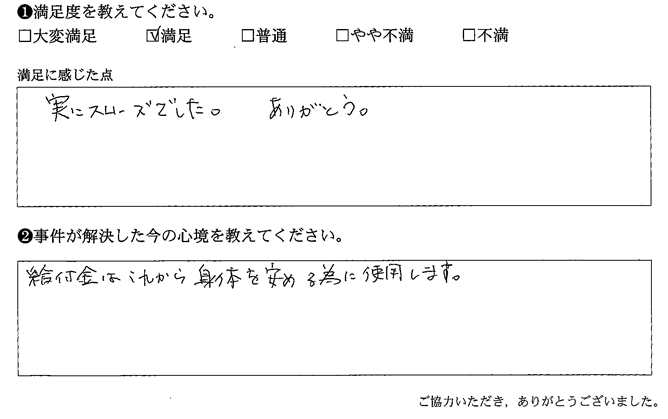 ❶満足度を教えてください。
□大変満足 ☑満足 □普通 □やや不満 □不満
満足に感じた点
実にスムーズでした。 ありがとう。
❷事件が解決した今の心境を教えてください。
給付金はこれから身体を安める為に使用します。
ご協力いただき，ありがとうございました。